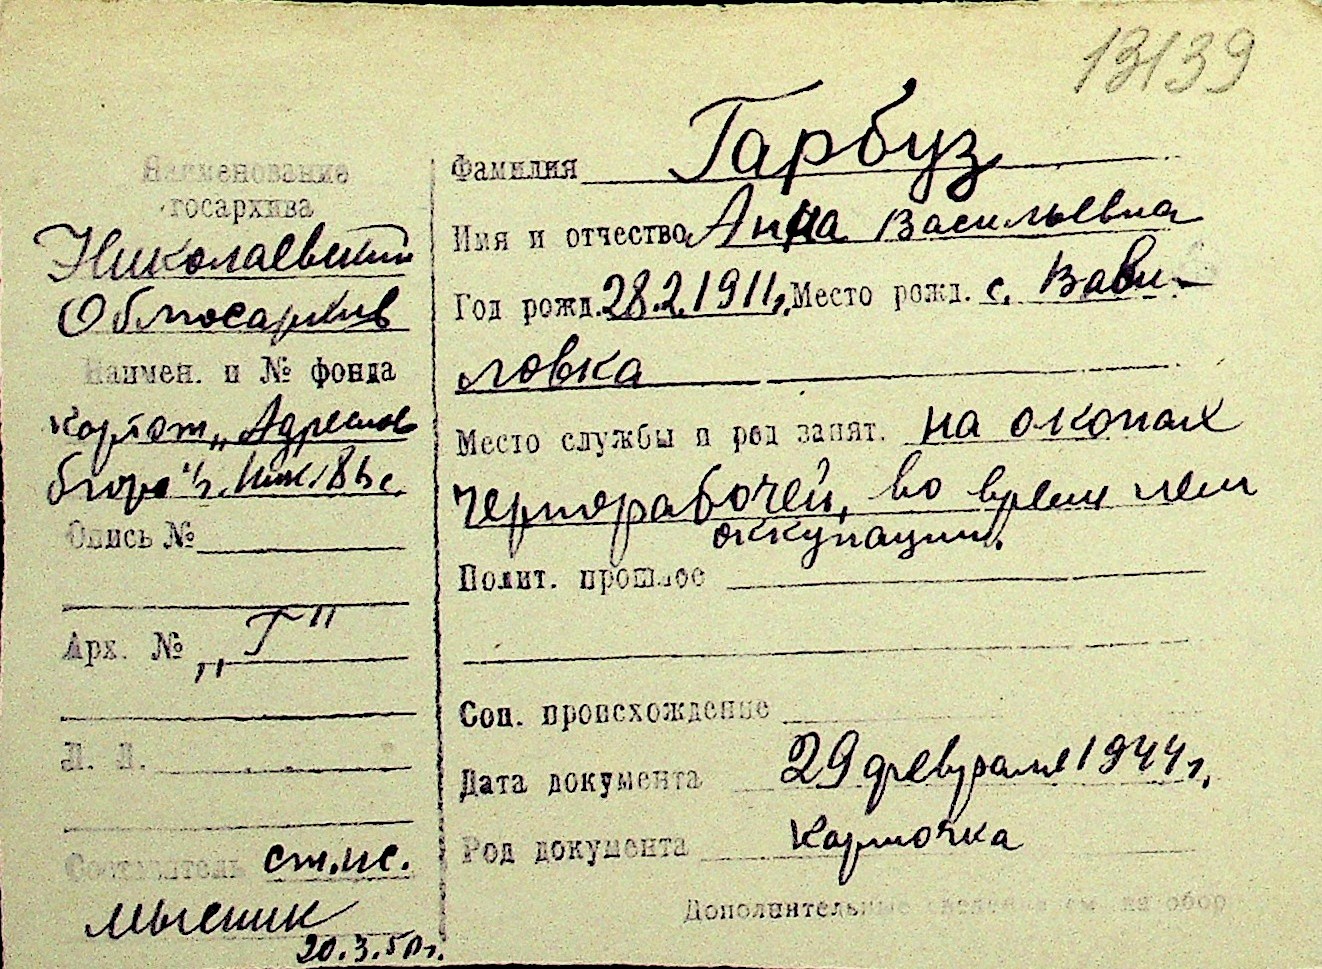 13139
Наименование
госархива
Николаевский
Облгосархив
Наимен. и № фонда
Картот „Адресного
бюро" г.
Опись №
Арх. № „Г"
Л. Л.
Составитель ст.нс.
Мысник
20.3.50г.
Фамилия Гарбуз
Имя и отчество Анна Васильевна
Год рожд. 28.2.1911г. Место рожд. с. Вави-
ловка
Место службы и род занят. на окопах
чернорабочей, во время нем
оккупации.
Полит. прошлое
Соц. происхождение
Дата документа 29 февраля 1944г.
Род документа Карточка
Дополнительные сведения см. на обор